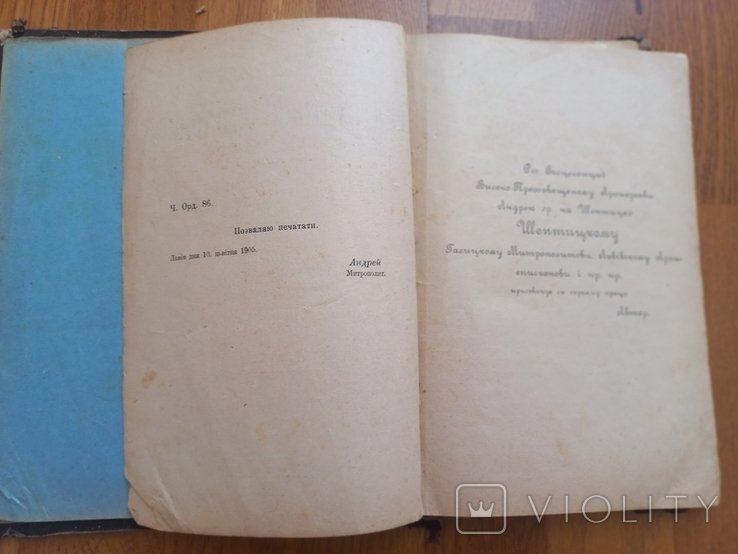 Ч. Орд. 86.
Позваляю печатати.
Львів дня 10. цьвітня 1905.
Андрей
Митрополит.
Его Ексцеленциї
Високо-Преосвященому
Андрею гр. на Шептицах
Шептицкому
Галицкому Митрополитови, Львівскому Архи-
епископови і пр. пр.
присвячує сю скромну працю
Автор.
VIOLITY